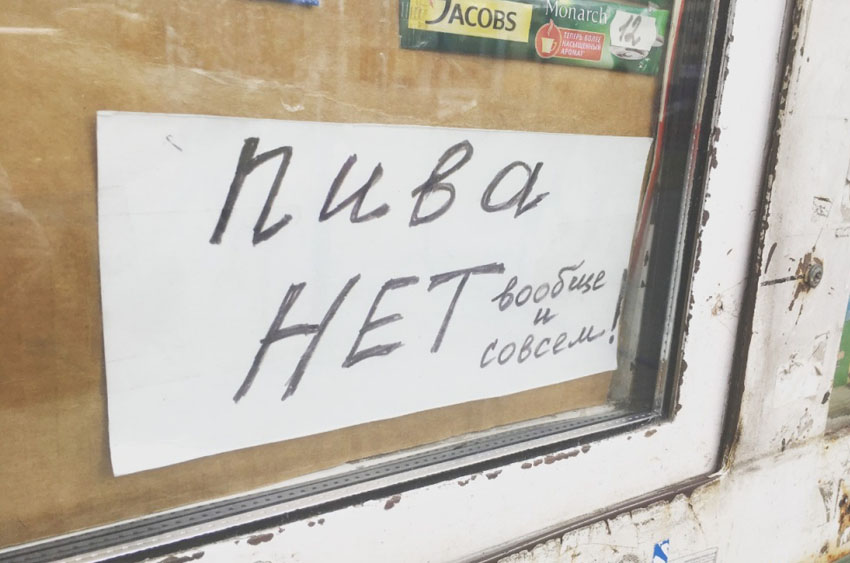 JACOBS
Monarch
12
ТЕПЕРЬ БОЛЕЕ
НАСЫЩЕННЫЙ
АРОМАТ
пива
НЕТ вообще
и
совсем!